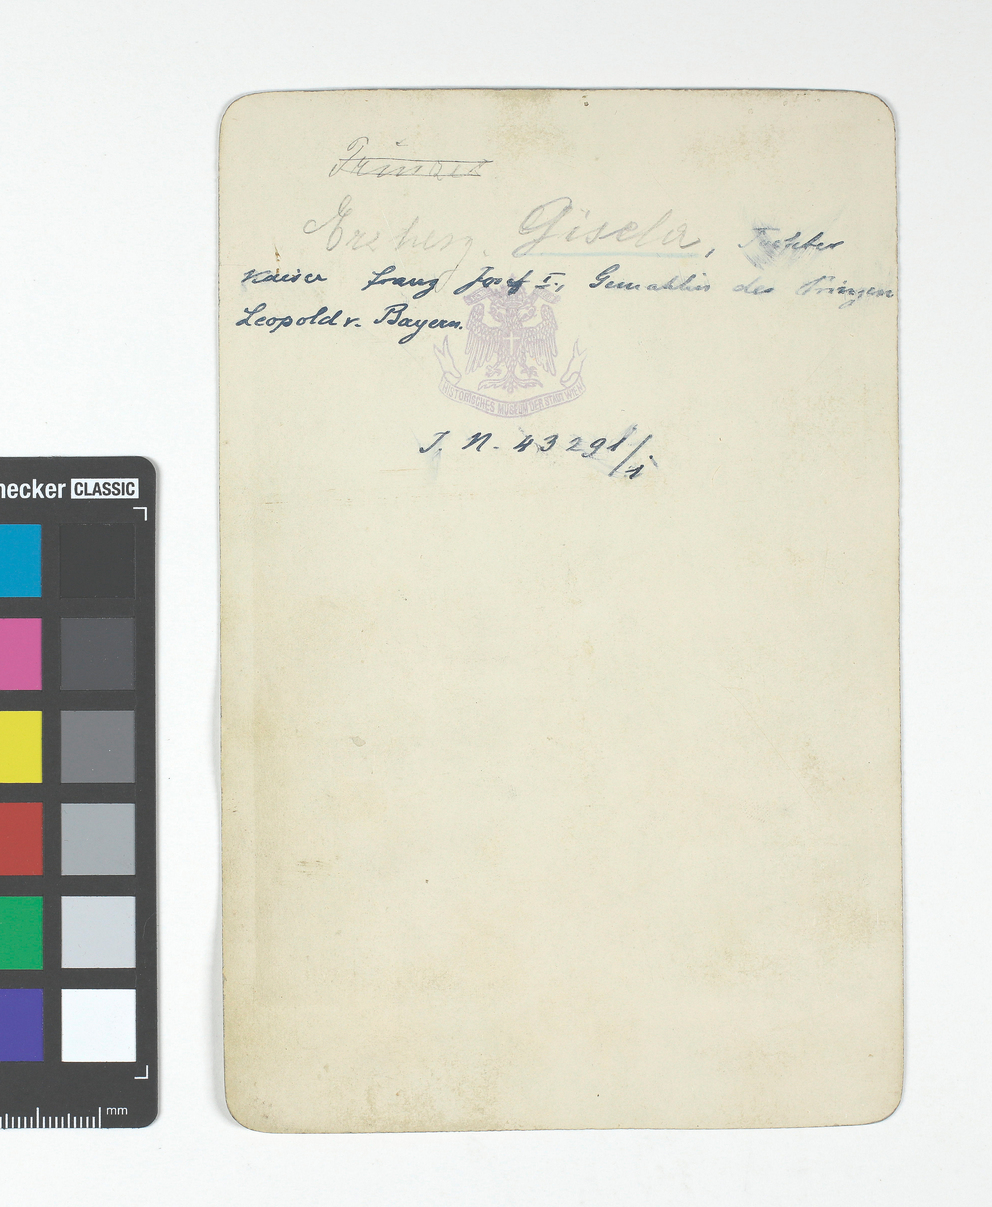 Prinzes
Erzherz. Gisela, Tochter
Kaiser Franz Josef I., Gemahlin des Prinzen
Leopold v. Bayern.
HISTORISCHES MUSEUM DER STADT WIEN
I. N. 43291/1
necker CLASSIC
mm